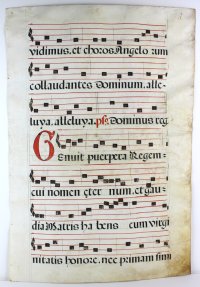 vidimus. et choros Angelo rum
collaudantes Dominum. alle-
luya. alleluya. ps. Dominus reg
Genuit puerpera Regem.
cui nomen eter num. et gau
dia Matris ha bens cum virgi
nitatis honore. nec primam simi